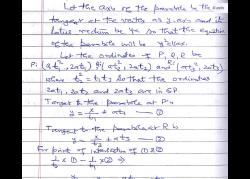 Let the axis of the parabola be the
tangent at the vertex as y-axis and it
latus rectum be 4a so that the equation
of the parabola will be y²=4ax.
Let the ordinates of P, Q, R be
P: (at₁², 2at₁) Q: (at₂², 2at₂) and R: (at₃², 2at₃)
where t₂² = t₁t₃ so that the ordinates
2at₁, 2at₂ and 2at₃ are in GP
Tangent to the parabola at P is
y = x/t₁ + at₁ — ①
Tangent to the parabola at R is
y = x/t₃ + at₃ — ②
For point of intersection of ① & ②
1/t₃ × ① − 1/t₁ × ② ⇒